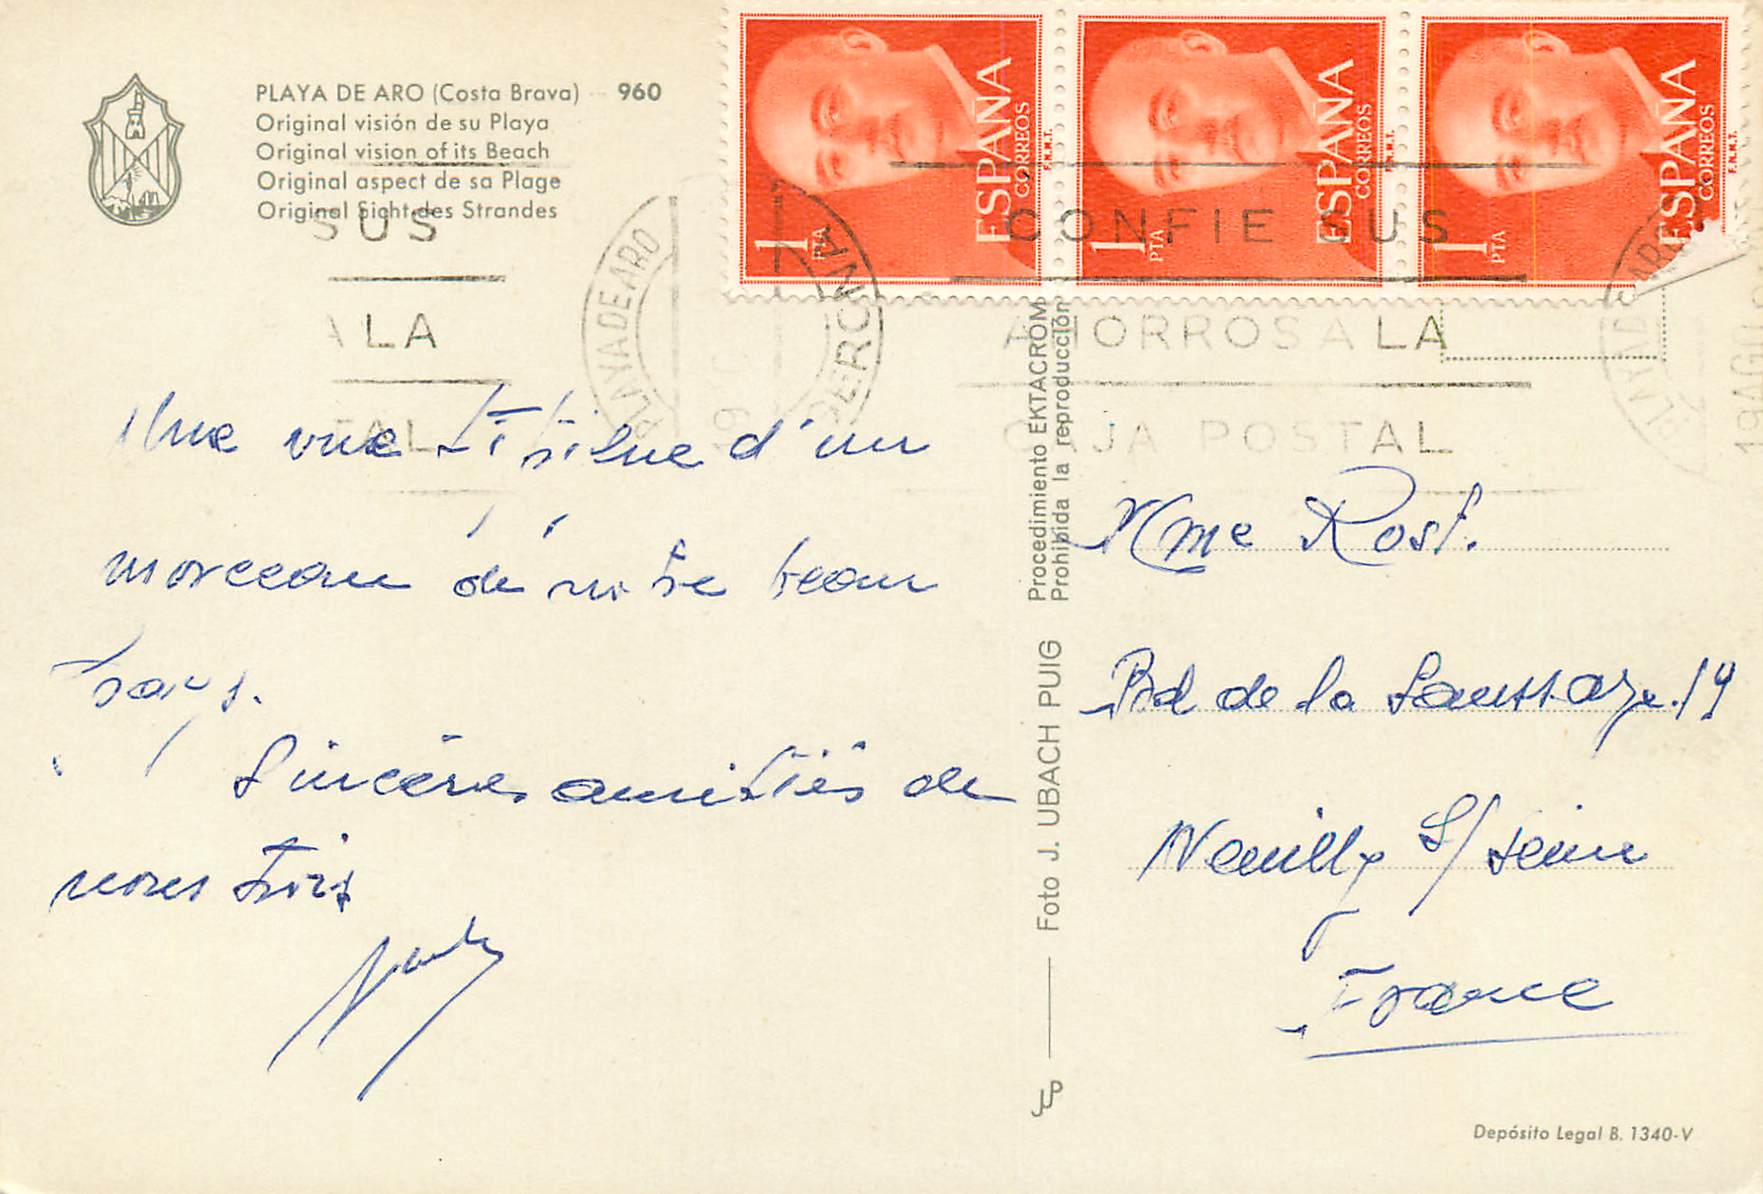 PLAYA DE ARO (Costa Brava) - 960
Original visión de su Playa
Original vision of its Beach
Original aspect de sa Plage
Original Sight des Strandes
SUS
A LA
TAL
PLAYA DE ARO
GERONA
1 PTA
ESPAÑA
CORREOS
F.N.M.T.
1 PTA
ESPAÑA
CORREOS
F.N.M.T.
1 PTA
ESPAÑA
CORREOS
F.N.M.T.
CONFIE SUS
AHORROS A LA
CAJA POSTAL
PLAYA D ARO
Une vue d'un
morceau de notre beau
pays.
Sincères amitiés de
nous trois
Foto J. UBACH PUIG
Procedimiento EKTACROM
Prohibida la reproducción
JUP
Mme Rost.
Bd de la Saussaye. 19
Neuilly S/ Seine
France
Depósito Legal B. 1340-V